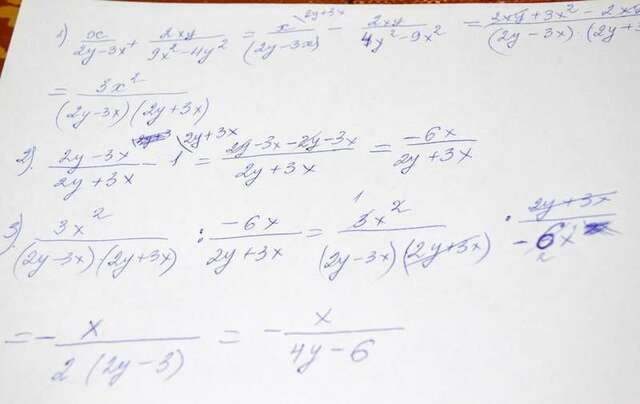 1) x/(2y-3x) + 2xy/(9x²-4y²) = x\2y+3x/(2y-3x) - 2xy/(4y²-9x²) = (2xy+3x²-2xy)/((2y-3x)(2y+3
= 3x²/((2y-3x)(2y+3x))
2) (2y-3x)/(2y+3x) - 1\2y+3x = (2y-3x-2y-3x)/(2y+3x) = -6x/(2y+3x)
3) 3x²/((2y-3x)(2y+3x)) : -6x/(2y+3x) = 1 3x²/((2y-3x)(2y+3x)) · (2y+3x)/(-6x) 2
= - x/(2(2y-3)) = - x/(4y-6)